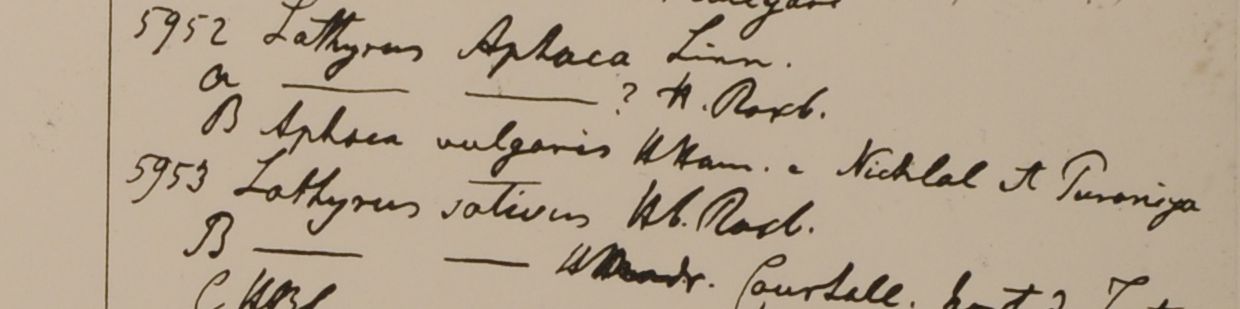 5952 Lathyrus Aphaca Linn.
a —— —— ? H. Roxb.
B Aphaca vulgaris HHam. e Nichlal et Puraniya
5953 Lathyrus sativus Hb. Roxb.
B —— ——
C